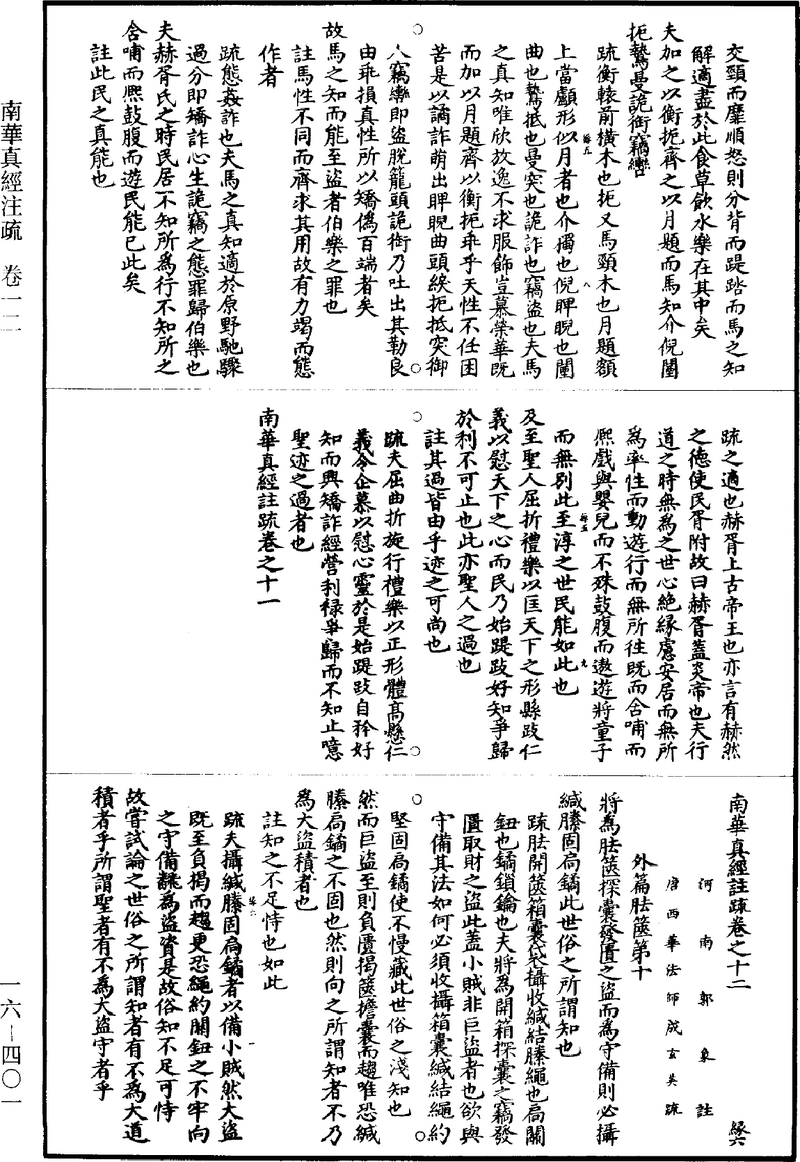 交頸而靡順怒則分背而踶踏而馬之知
解適盡於此食草飲水樂在其中矣
夫加之以衡扼齊之以月題而馬知介倪闉
扼鷙曼詭銜竊轡
疏衡轅前橫木也扼叉馬頸木也月題額
上當顱形似月者也介獨也倪睥睨也闉
曲也鷙抵也曼突也詭詐也竊盜也夫馬
之真知唯欣放逸不求服飾豈慕榮華既
而加以月題齊以衡扼乖乎天性不任困
苦是以譎詐萌出睥睨曲頭緩扼抵突御
人竊轡即盜脫籠頭詭銜乃吐出其勒良
由乖損真性所以矯偽百端者矣
故馬之知而能至盜者伯樂之罪也
註馬性不同而齊求其用故有力竭而態
作者
疏態姦詐也夫馬之真知適於原野馳驟
過分即矯詐心生詭竊之態罪歸伯樂也
夫赫胥氏之時民居不知所為行不知所之
含哺而熈鼓腹而遊民能已此矣
註此民之真能也
疏之適也赫胥上古帝王也亦言有赫然
之德使民胥附故曰赫胥蓋炎帝也夫行
道之時無為之世心絶緣慮安居而無所
為率性而動遊行而無所往既而含哺而
熈戲與嬰兒而不殊鼓腹而遨遊將童子
而無別此至淳之世民能如此也
及至聖人屈折禮樂以匡天下之形縣跂仁
義以慰天下之心而民乃始踶跂好知爭歸
於利不可止也此亦聖人之過也
註其過皆由乎迹之可尚也
疏夫屈曲折旋行禮樂以正形體高懸仁
義令企慕以慰心靈於是始踶跂自矜好
知而興矯詐經營利祿爭歸而不知止噫
聖迹之過者也
南華真經註疏卷之十一
南華真經註疏卷之十二 緣六
河南郭象註
唐西華法師成玄英疏
外篇胠篋第十
將為胠篋探囊發匱之盜而為守備則必攝
緘縢固扃鐍此世俗之所謂知也
疏胠開篋箱囊袋攝收緘結縢繩也扃關
鈕也鐍鎖鑰也夫將為開箱探囊之竊發
匱取財之盜此蓋小賊非巨盜者也欲與
守備其法如何必須收攝箱囊緘結繩約
堅固扃鐍使不慢藏此世俗之淺知也
然而巨盜至則負匱揭篋擔囊而趨唯恐緘
縢扃鐍之不固也然則向之所謂知者不乃
為大盜積者也
註知之不足恃也如此
疏夫攝緘縢固扃鐍者以備小賊然大盜
既至負揭而趨更恐繩約關鈕之不牢向
之守備翻為盜資是故俗知不足可恃
故嘗試論之世俗之所謂知者有不為大道
積者乎所謂聖者有不為大盜守者乎
南華真經注疏 卷一二
一六—四〇一